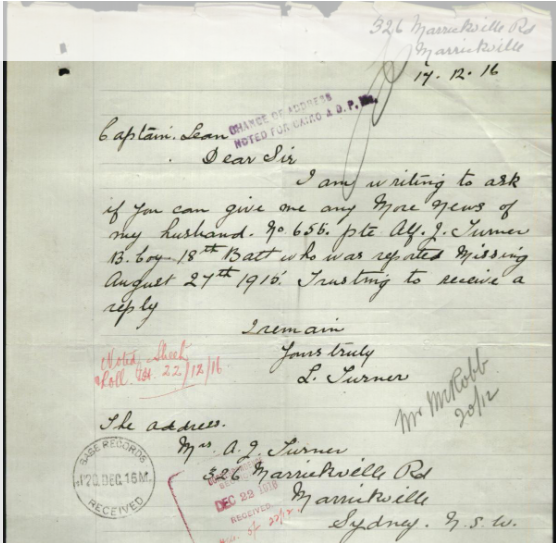 326 Marrickville Rd
Marrickville
17.12.16
CHANGE OF ADDRESS
NOTED FOR CAIRO & D.P.
Captain. Lean
Dear Sir
I am writing to ask
if you can give me any More News of
my husband. No 655. pte Alf. J. Turner
B. Coy 18th Batt who was reported Missing
August 27th 1915. Trusting to receive a
reply
I remain
Yours truly
L. Turner
Noted Sheet
Roll 22/12/16
Mr McRobb
20/12
The address.
Mrs. A. J Turner
326 Marrickville Rd
Marrickville
Sydney. N.S.W.
BASE RECORDS
20 DEC 16
RECEIVED
DEC 22 1916
RECEIVED